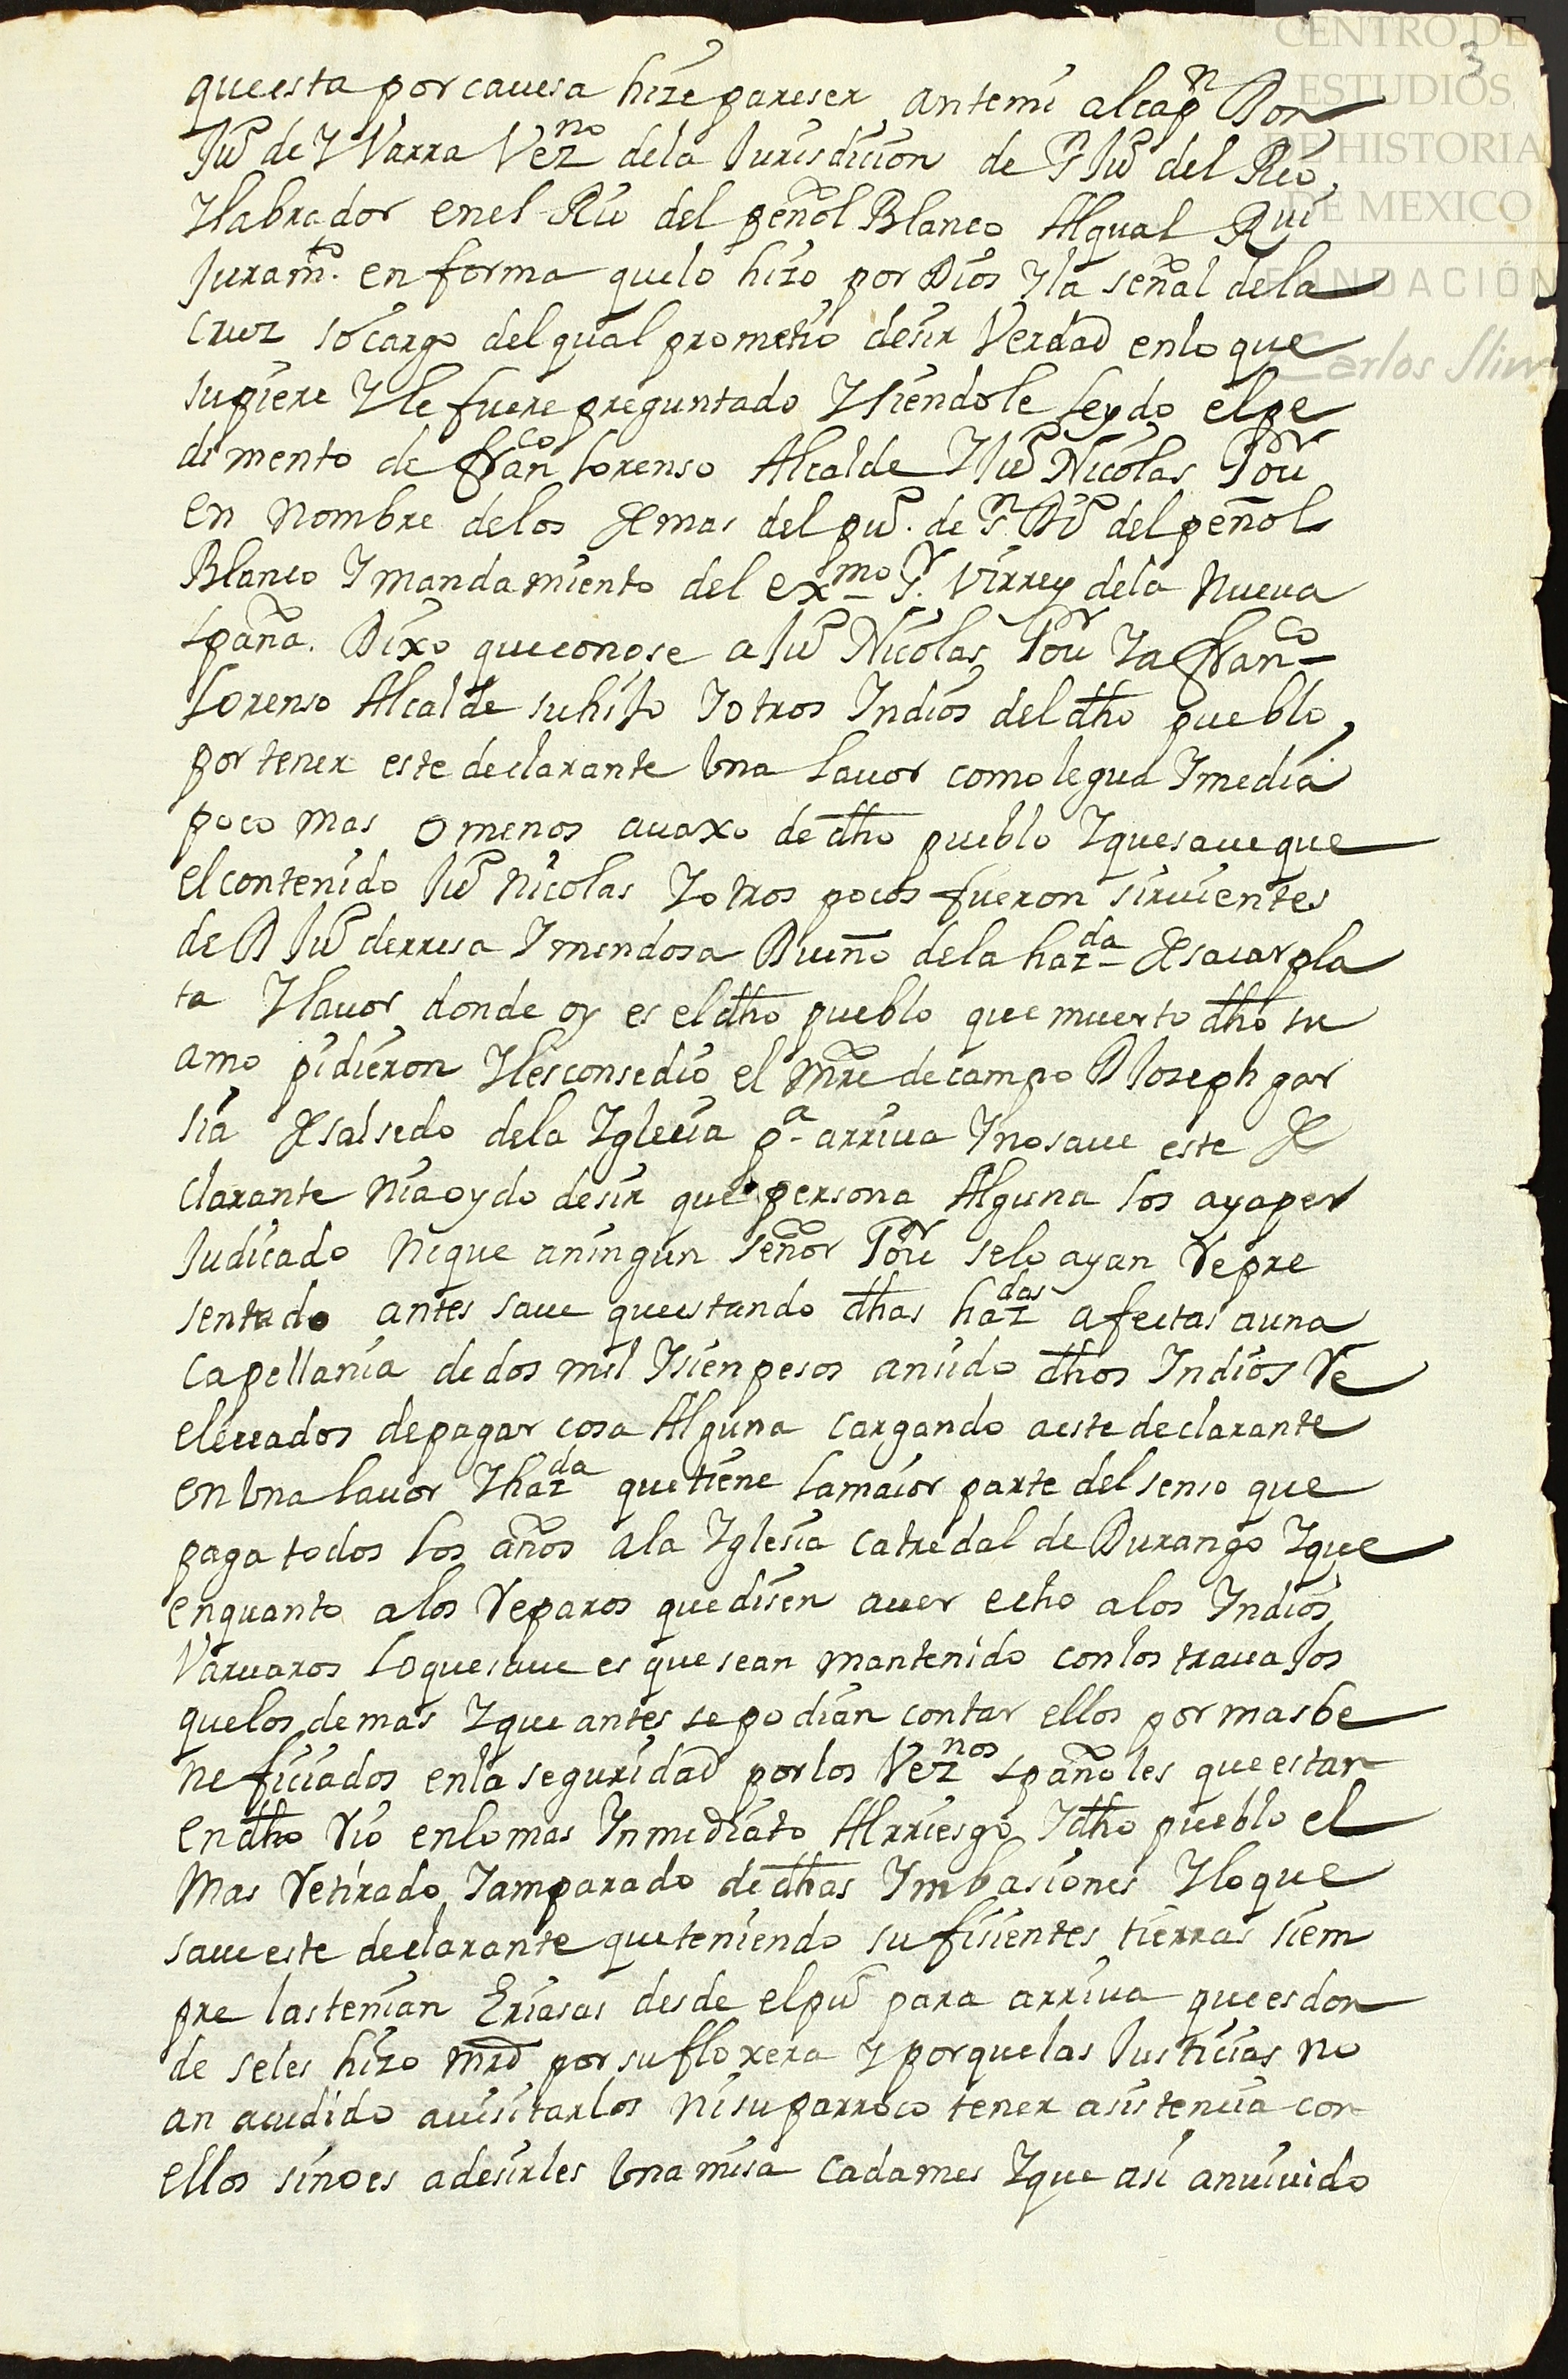 CENTRO DE
ESTUDIOS
DE HISTORIA
DE MEXICO
FUNDACIÓN
Carlos Slim
3
queesta por cauesa hize pareser antemi alcapn Don
Juº de Ybarra Vezno dela Jurisdicion de S Juº del Rio
Ylabrador enel Rio del peñol Blanco Alqual Rui
Juramto. en forma quelo hizo por Dios Yla señal dela
cruz so cargo delqual prometio desir Verdad enlo que
supiere Yle fuere preguntado Ysiendole leydo elpe
dimento de franco lorenso Alcalde YJuº Nicolas Gour
en nombre delos demas del puº. de Sn Diº del peñol
Blanco Ymandamiento del exmo Sr. Virrey dela nueua
spaña. Dixo queconose a Juº Nicolas Gour Ya franco
lorenso Alcalde suhijo Yotros Yndios deldho pueblo,
por tener este declarante Vna lauor como legua Ymedia
poco mas o menos auaxo de dho pueblo Yquesaue que
elcontenido Juº nicolas Yotros pocos fueron siruientes
de D Juº derresa Ymendosa Dueño dela hazda desacar pla
ta Ylauor donde oy es eldho pueblo que muerto dho su
amo pidieron Ylesconsedio el Mre decampo D Joseph gar
sia desalsedo dela Yglecia pa arriua Ynosaue este de
clarante niaoydo desir que persona Alguna los ayaper
Judicado nique aningun señor Gour selo ayan Repre
sentado antes saue queestando dhas hazdas afectas auna
capellania de dos mil Ysienpesos ansido dhos Yndios Re
eleuados depagar cosa Alguna cargando aeste declarante
en Vna lauor Yhazda quetiene lamaior parte del senso que
paga todos los años ala Yglesia catredal de Durango Yque
enquanto alos Reparos quedisen auer echo alos Yndios
Varuaros loquesaue es quesean mantenido conlos trauajos
quelos demas Yque antes sepodian contar ellos por masbe
neficiados enla seguridad porlos Veznos spañoles queestan
endho Rio enlomas Ynmediato Alrriesgo Ydho pueblo el
mas Retirado Yamparado de dhas Ymbasiones Yloque
saue este declarante queteniendo sufisientes tierras siem
pre lastenian Eriasas desde elpuº para arriua queesdon
de seles hizo mrd por su floxera Yporquelas Justicias no
an acudido auisitarlos nisuparroco tener asistencia con
ellos sinoes adesirles Vna misa cadames Yque asi anuiuido